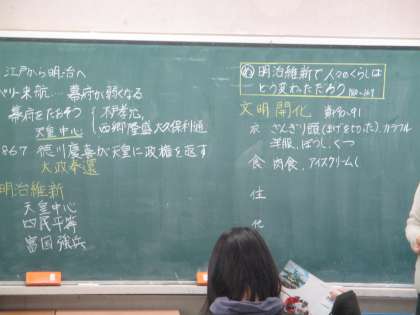 江戸から明治へ
ペリー来航…幕府が弱くなる
幕府をたおそう 木戸孝允
天皇中心 西郷隆盛 大久保利通
867 徳川慶喜が天皇に政権を返す
大政奉還
明治維新
天皇中心
四民平等
富国強兵
め 明治維新で人々のくらしは
どう変わっただろう
文明開化
衣 ざんぎり頭(まげをとった)、カラフル
洋服、ぼうし、くつ
食 肉食、アイスクリーム(
住
他